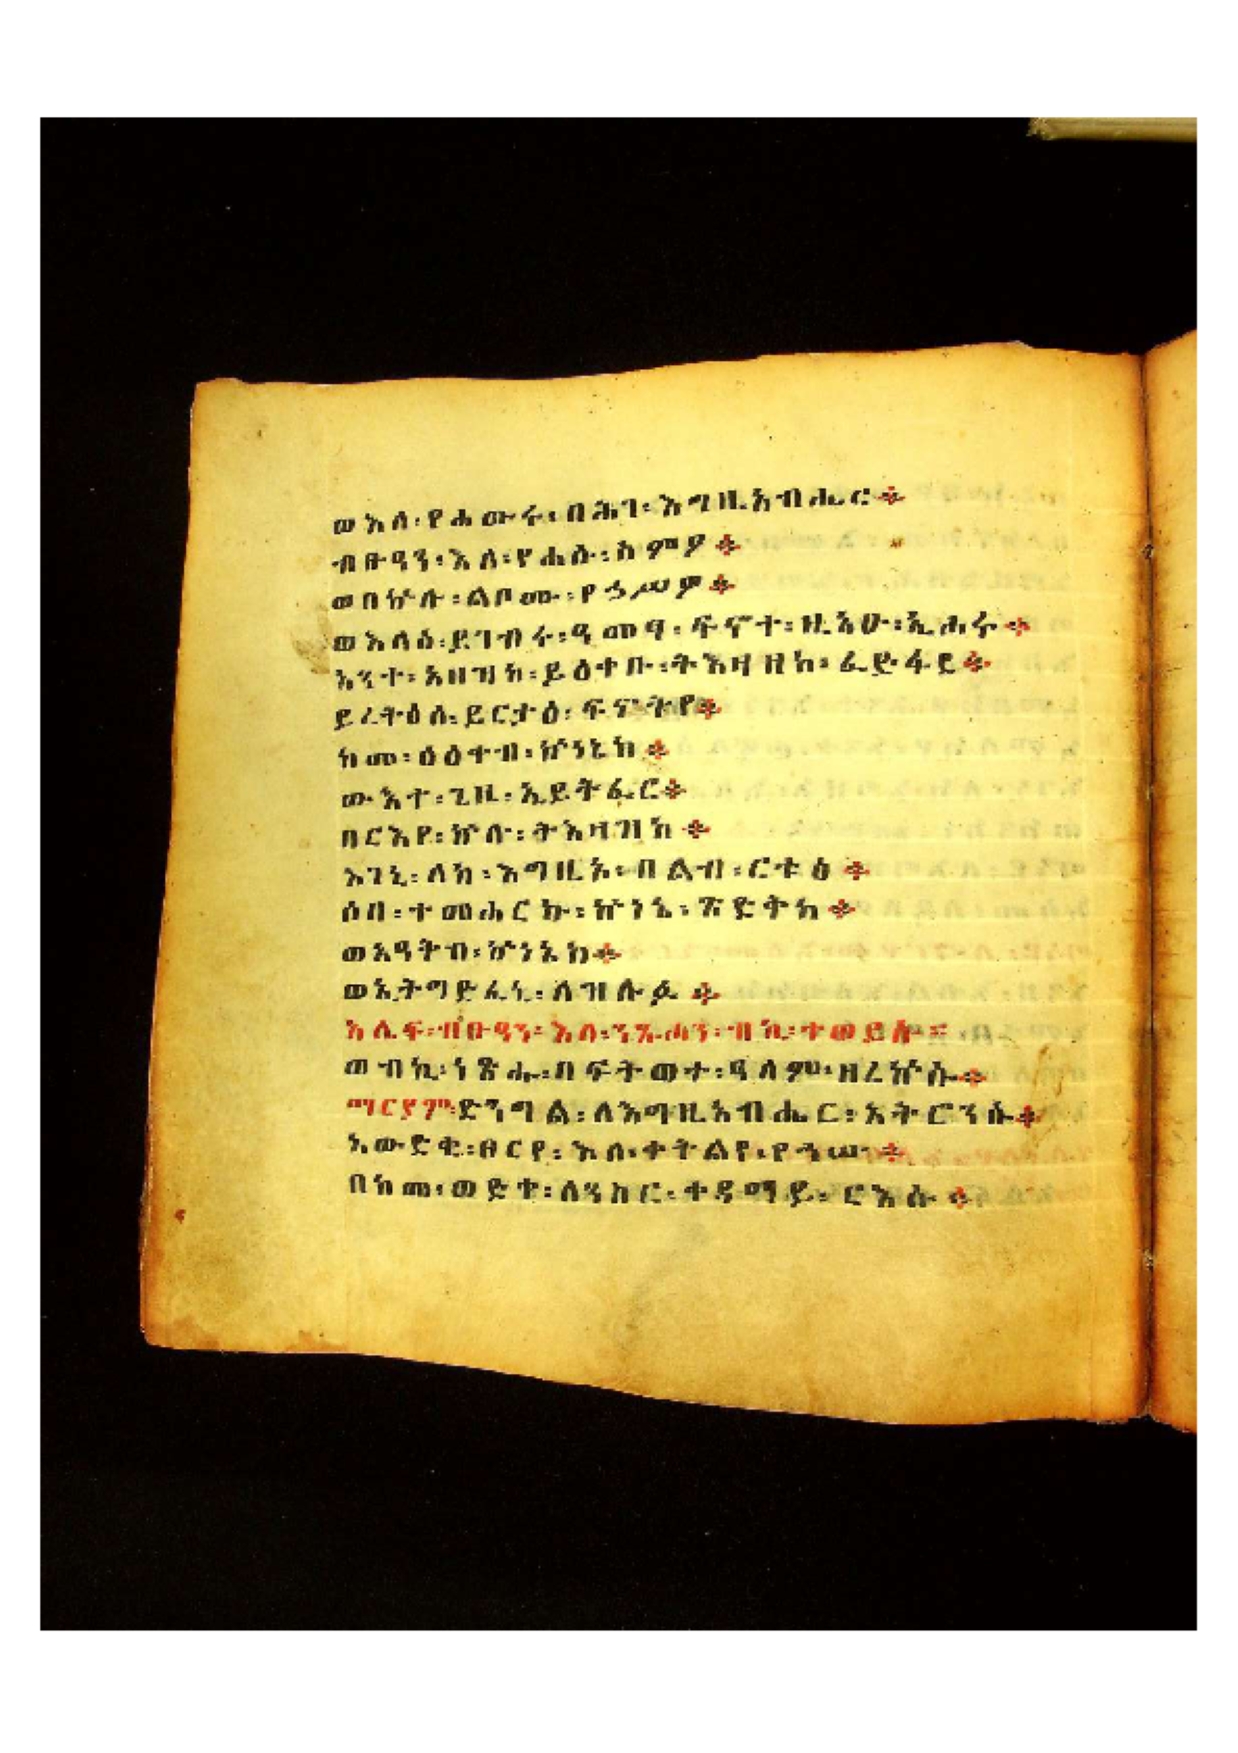 ወእለ፡የሐውሩ፡በሕገ፡እግዚአብሔር፨
ብፁዓን፡እለ፡የሐሱ፡ስምዖ፨
ወበኵሉ፡ልቦሙ፡የኃሥሥዎ፨
ወእለሰ፡ይገብሩ፡ዓመፃ፡ፍኖተ፡ዚአሁ፡ኢሐሩ፨
አንተ፡አዘዝከ፡ይዕቀቡ፡ትእዛዘከ፡ፈድፋደ፨
ይረትዕሰ፡ይርታዕ፡ፍኖትየ፨
ከመ፡ዕዕቀብ፡ኵነኔከ፨
ውእተ፡ጊዜ፡ኢይትፈር፨
በርእየ፡ኵሉ፡ትእዛዝከ፨
እገኒ፡ለከ፡እግዚኦ፡በልብ፡ርቱዕ፨
ሶበ፡ተመሐርኩ፡ኵነኔ፡ጽድቅከ፨
ወአዓቅብ፡ኵነኔከ፨
ወኢትግድፈኒ፡ለዝሉፉ፨
አሌፍ፡ብፁዓን፡እለ፡ንጹሓን፡ብኪ፡ተወይሱ፡፡
ወብኪ፡ነጽሑ፡በፍትወተ፡ዓለም፡ዘረኵሱ፨
ማርያም፡ድንግል፡ለእግዚአብሔር፡አትሮንሱ፨
አውድቂ፡ፀርየ፡እለ፡ቀትልየ፡የኀሡ፨
በከመ፡ወድቀ፡ለኒከር፡ቀዳማይ፡ርእሱ፨